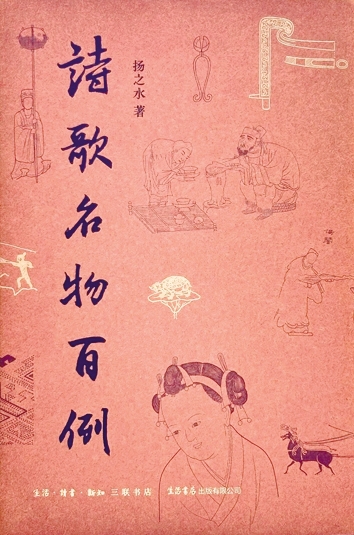 詩歌名物百例
扬之水 著
生活·讀書·新知 三联书店
生活書店出版有限公司